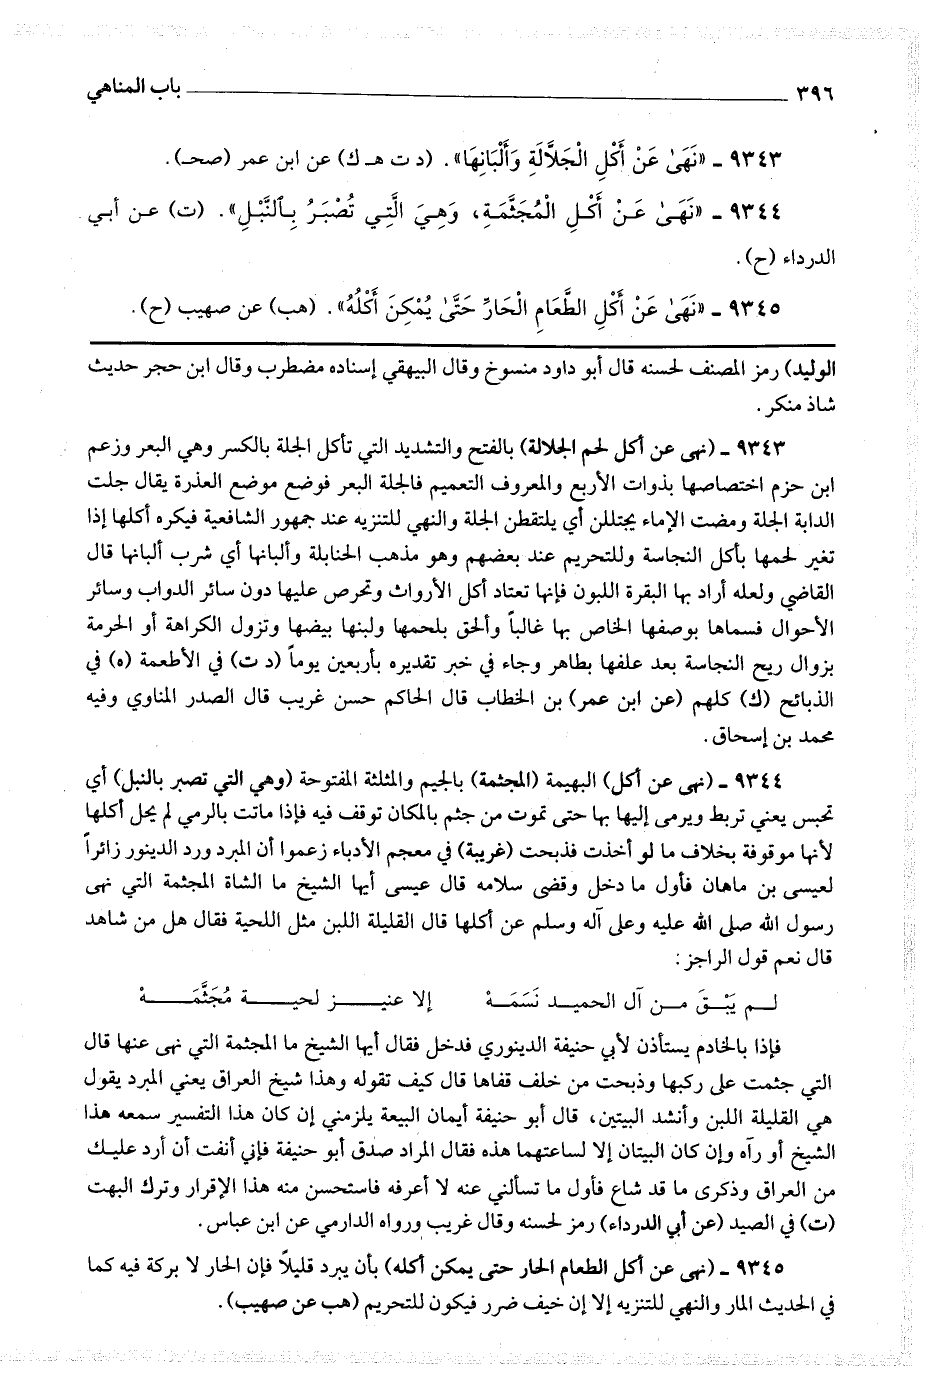 ٣٩٦ باب المناهي
٩٣٤٣ ـ «نَهَىٰ عَنْ أَكْلِ الْجَلَّالَةِ وَأَلْبَانِهَا». (د ت هـ ك) عن ابن عمر (صحـ).
٩٣٤٤ ـ «نَهَىٰ عَنْ أَكْلِ الْمُجَثَّمَةِ، وَهِيَ الَّتِي تُصْبَرُ بِالنَّبْلِ». (ت) عن أبي
الدرداء (ح).
٩٣٤٥ ـ «نَهَىٰ عَنْ أَكْلِ الطَّعَامِ الْحَارِّ حَتَّىٰ يُمْكِنَ أَكْلُهُ». (هب) عن صهيب (ح).
الوليد) رمز المصنف لحسنه قال أبو داود منسوخ وقال البيهقي إسناده مضطرب وقال ابن حجر حديث
شاذ منكر.
٩٣٤٣ ـ (نهى عن أكل لحم الجلالة) بالفتح والتشديد التي تأكل الجلة بالكسر وهي البعر وزعم
ابن حزم اختصاصها بذوات الأربع والمعروف التعميم فالجلة البعر فوضع موضع العذرة يقال جلت
الدابة الجلة ومضت الإماء يجتللن أي يلتقطن الجلة والنهي للتنزيه عند جمهور الشافعية فيكره أكلها إذا
تغير لحمها بأكل النجاسة وللتحريم عند بعضهم وهو مذهب الحنابلة وألبانها أي شرب ألبانها قال
القاضي ولعله أراد بها البقرة اللبون فإنها تعتاد أكل الأرواث وتحرص عليها دون سائر الدواب وسائر
الأحوال فسماها بوصفها الخاص بها غالباً وألحق بلحمها ولبنها بيضها وتزول الكراهة أو الحرمة
بزوال ريح النجاسة بعد علفها بطاهر وجاء في خبر تقديره بأربعين يوماً (د ت) في الأطعمة (ه) في
الذبائح (ك) كلهم (عن ابن عمر) بن الخطاب قال الحاكم حسن غريب قال الصدر المناوي وفيه
محمد بن إسحاق.
٩٣٤٤ ـ (نهى عن أكل) البهيمة (المجثمة) بالجيم والمثلثة المفتوحة (وهي التي تصبر بالنبل) أي
تحبس يعني تربط ويرمى إليها بها حتى تموت من جثم بالمكان توقف فيه فإذا ماتت بالرمي لم يحل أكلها
لأنها موقوفة بخلاف ما لو أخذت فذبحت (غريبة) في معجم الأدباء زعموا أن المبرد ورد الدينور زائراً
لعيسى بن ماهان فأول ما دخل وقضى سلامه قال عيسى أيها الشيخ ما الشاة المجثمة التي نهى
رسول الله صلى الله عليه وعلى آله وسلم عن أكلها قال القليلة اللبن مثل اللحية فقال هل من شاهد
قال نعم قول الراجز:
لـم يَبْـقَ مـن آل الحميـد نَسَمَهْ إلا عنيـز لحيـة مُجَثَّمَـهْ
فإذا بالخادم يستأذن لأبي حنيفة الدينوري فدخل فقال أيها الشيخ ما المجثمة التي نهى عنها قال
التي جثمت على ركبها وذبحت من خلف قفاها قال كيف تقوله وهذا شيخ العراق يعني المبرد يقول
هي القليلة اللبن وأنشد البيتين، قال أبو حنيفة أيمان البيعة يلزمني إن كان هذا التفسير سمعه هذا
الشيخ أو رآه وإن كان البيتان إلا لساعتهما هذه فقال المراد صدق أبو حنيفة فإني أنفت أن أرد عليك
من العراق وذكرى ما قد شاع فأول ما تسألني عنه لا أعرفه فاستحسن منه هذا الإقرار وترك البهت
(ت) في الصيد (عن أبي الدرداء) رمز لحسنه وقال غريب ورواه الدارمي عن ابن عباس.
٩٣٤٥ ـ (نهى عن أكل الطعام الحار حتى يمكن أكله) بأن يبرد قليلاً فإن الحار لا بركة فيه كما
في الحديث المار والنهي للتنزيه إلا إن خيف ضرر فيكون للتحريم (هب عن صهيب).